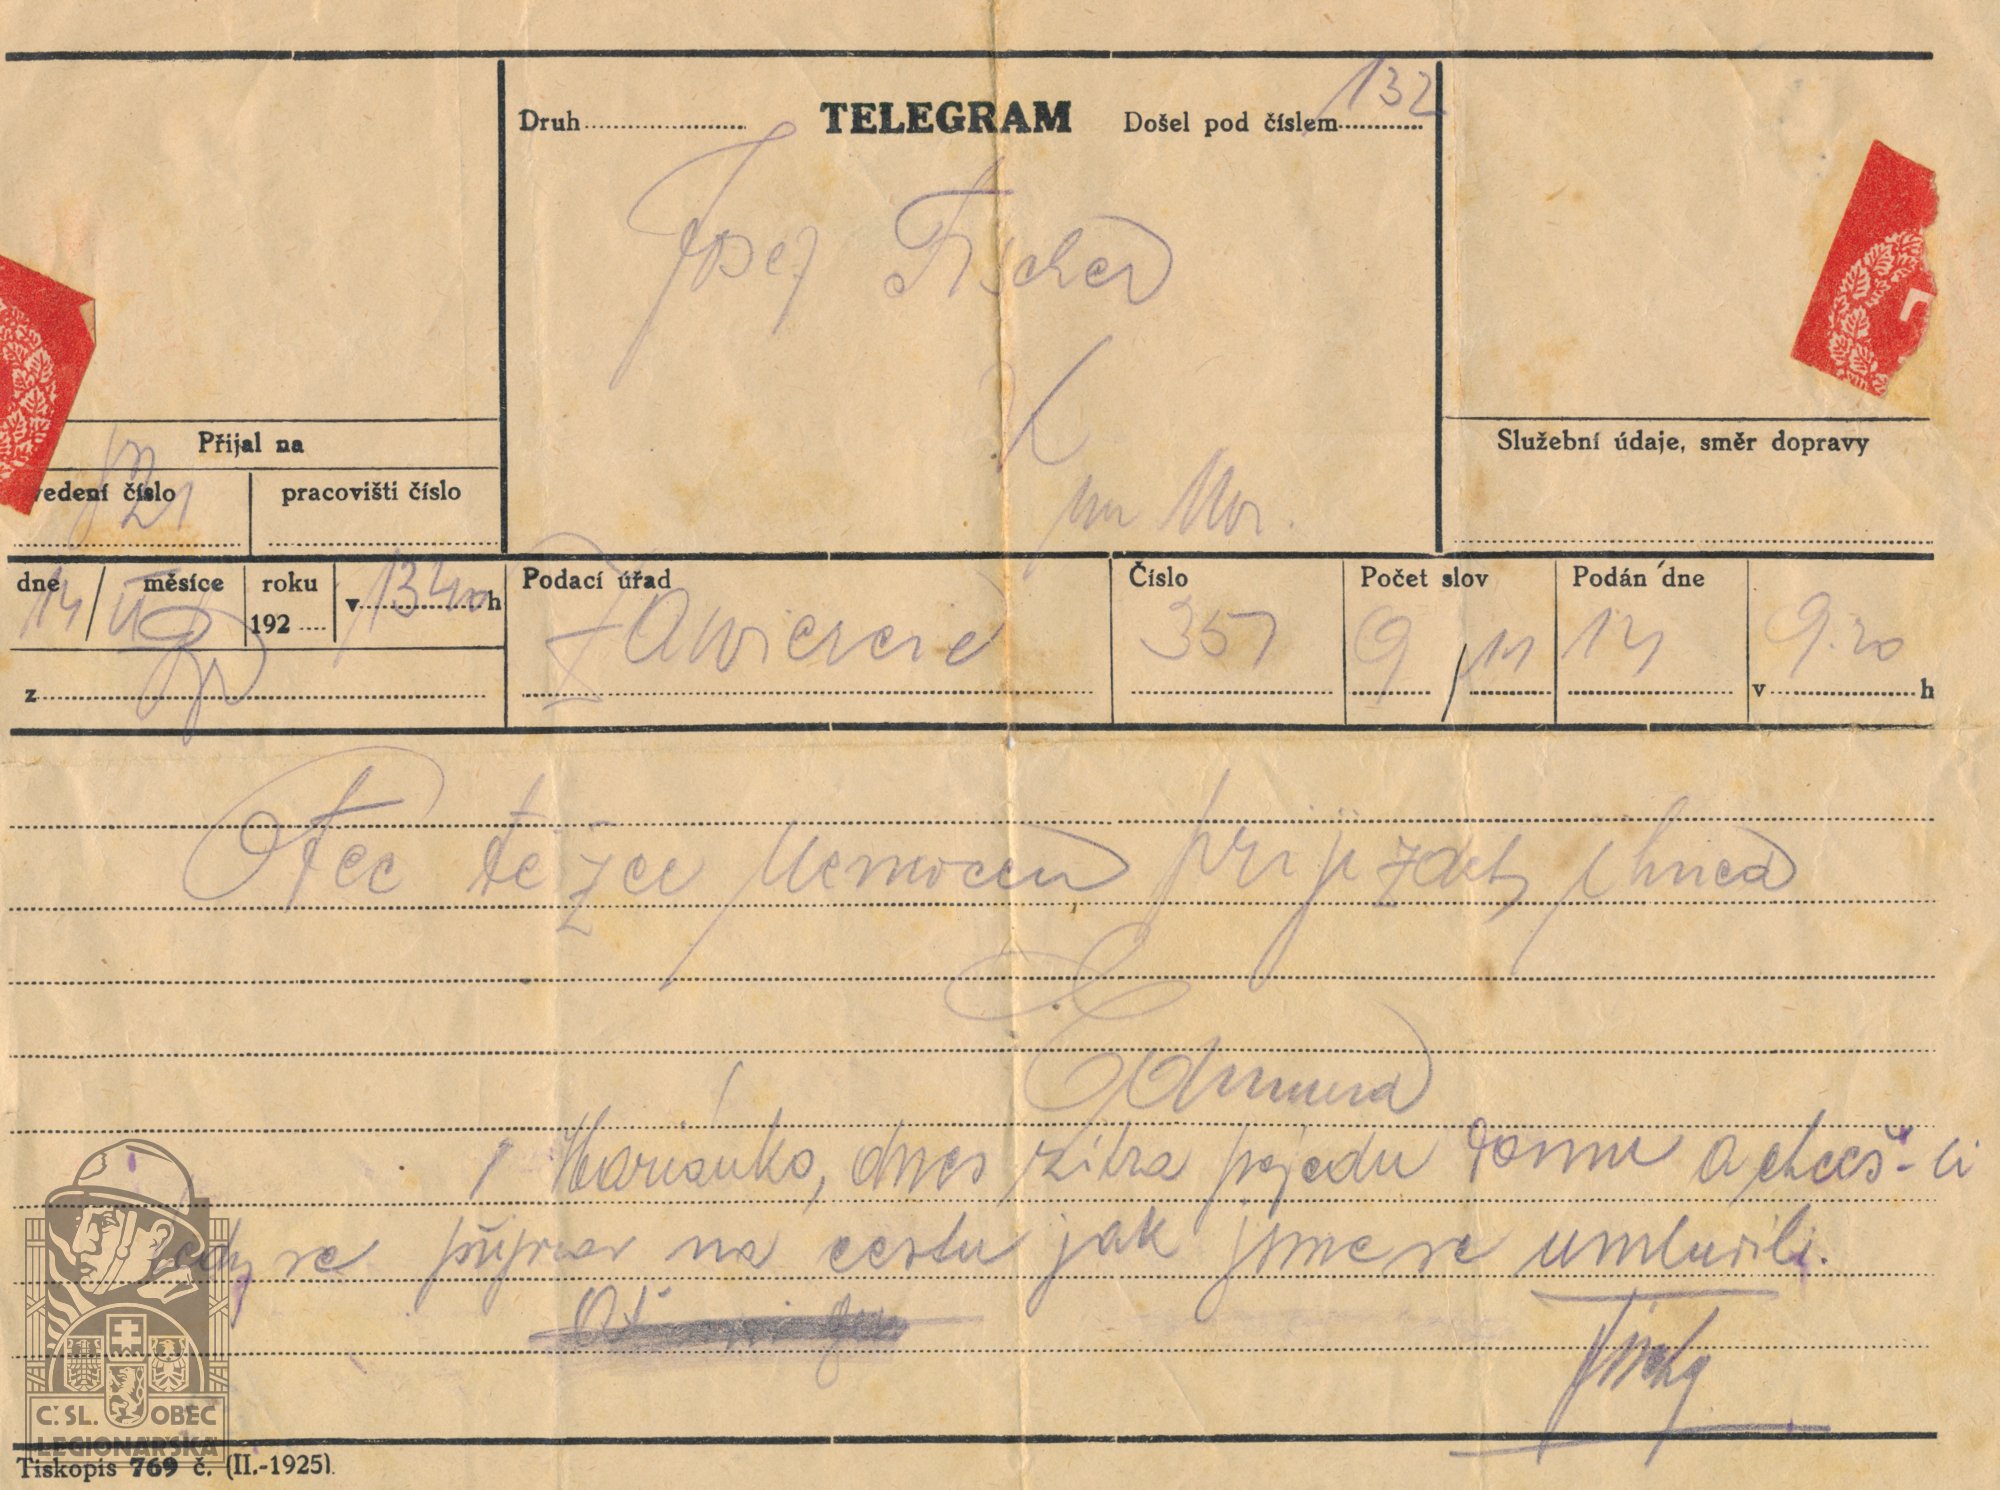 Druh TELEGRAM Došel pod číslem 132
Josef Fischer
Mor.
Přijal na
vedení číslo
pracovišti číslo
Služební údaje, směr dopravy
dne 14 / měsíce II roku 192 v 1340 h
z
Podací úřad Zawiercie
Číslo 357
Počet slov 9 / 11
Podán dne 14
v 9.20 h
Otec težce nemocen prijizdej ihned
Edmund
Mariánko, dnes zitra pojedu domu a chceš-li
tedy se připrav na cestu jak jsme se umluvili.
Č. SL. OBEC
LEGIONÁŘSKÁ
Tiskopis 769 č. (II.-1925).